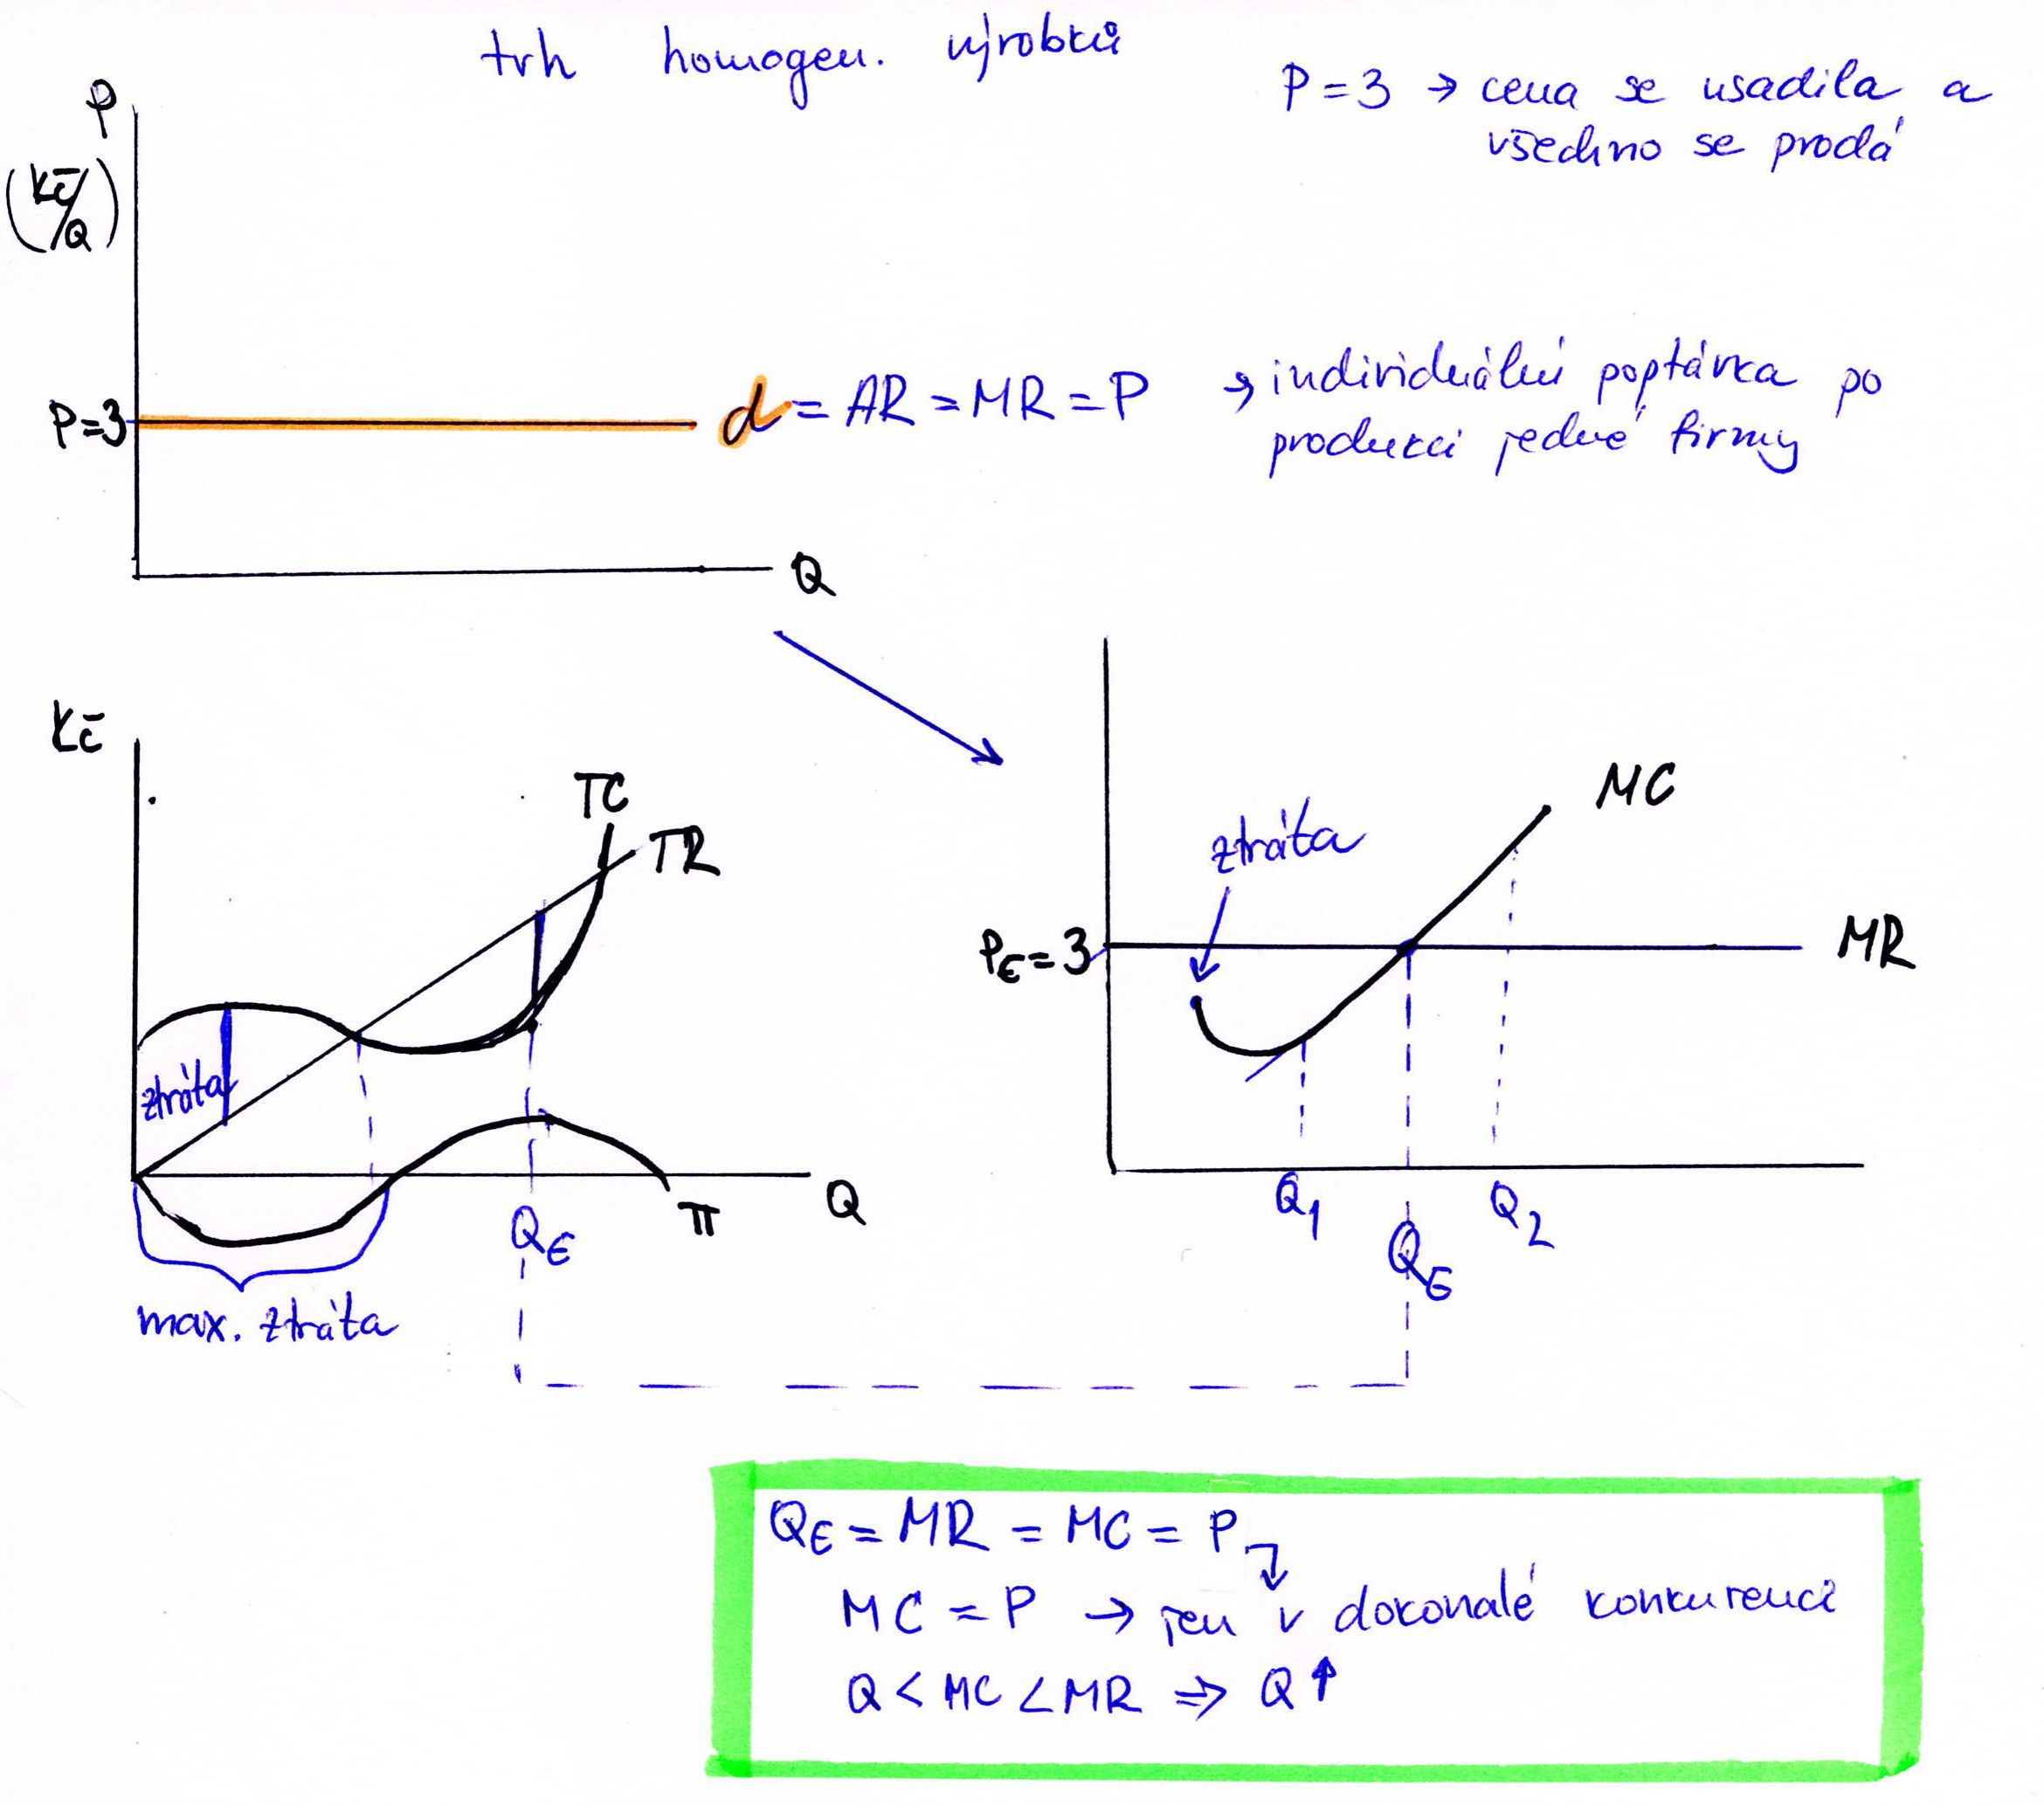 trh homogen. výrobků
P = 3 → cena se usadila a
všechno se prodá
P
(Kč/Q)
P=3
d = AR = MR = P → individuální poptávka po
produkci jedné firmy
Q
Kč
TC
TR
ztráta
Q
QE
π
max. ztráta
MC
ztráta
PE = 3
MR
Q1
Q2
QE
QE = MR = MC = P
MC = P → jen v dokonalé konkurenci
Q < MC < MR ⇒ Q↑